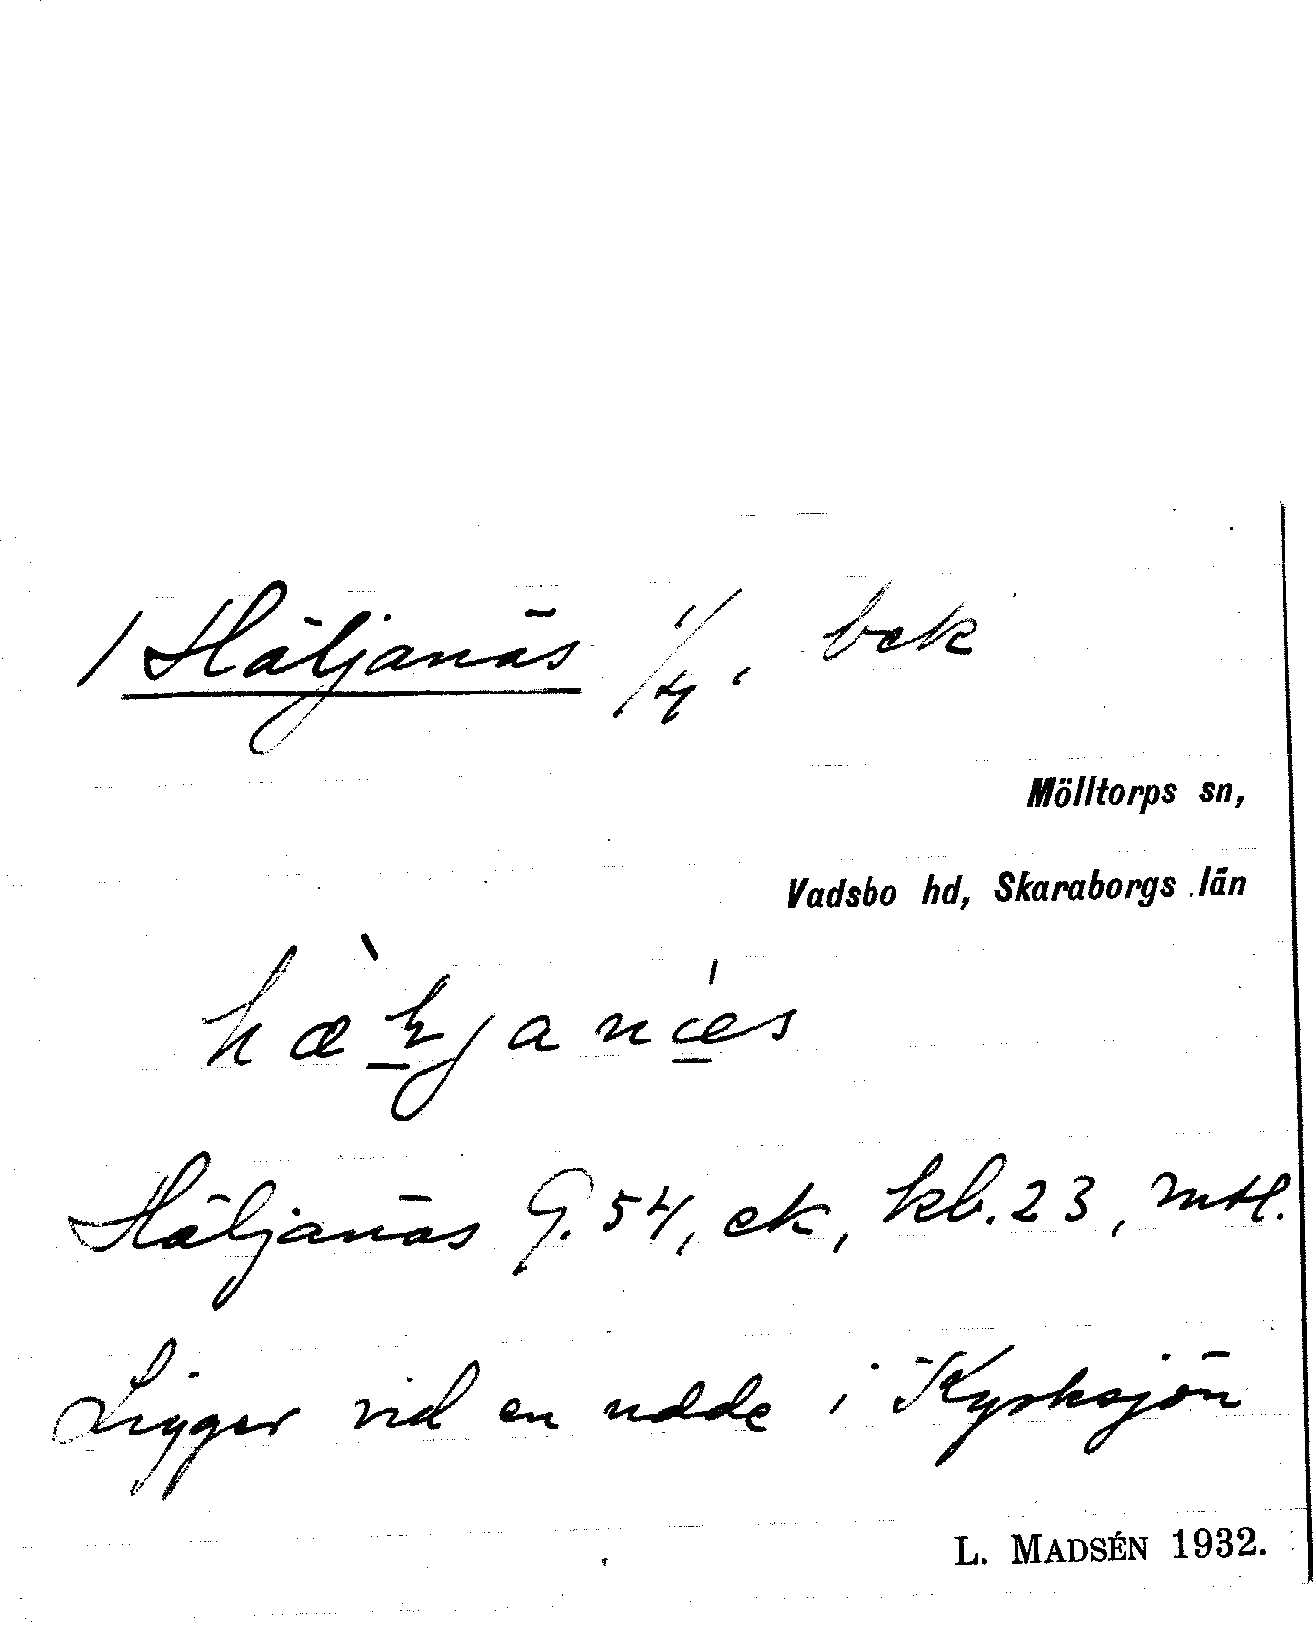 / Häljanäs 1/4, bek
Mölltorps sn,
Vadsbo hd, Skaraborgs län
Häljanäs G. 54, ek, kb. 23, mtl.
Ligger vid en udde i Kyrksjön
L. MADSÉN 1932.